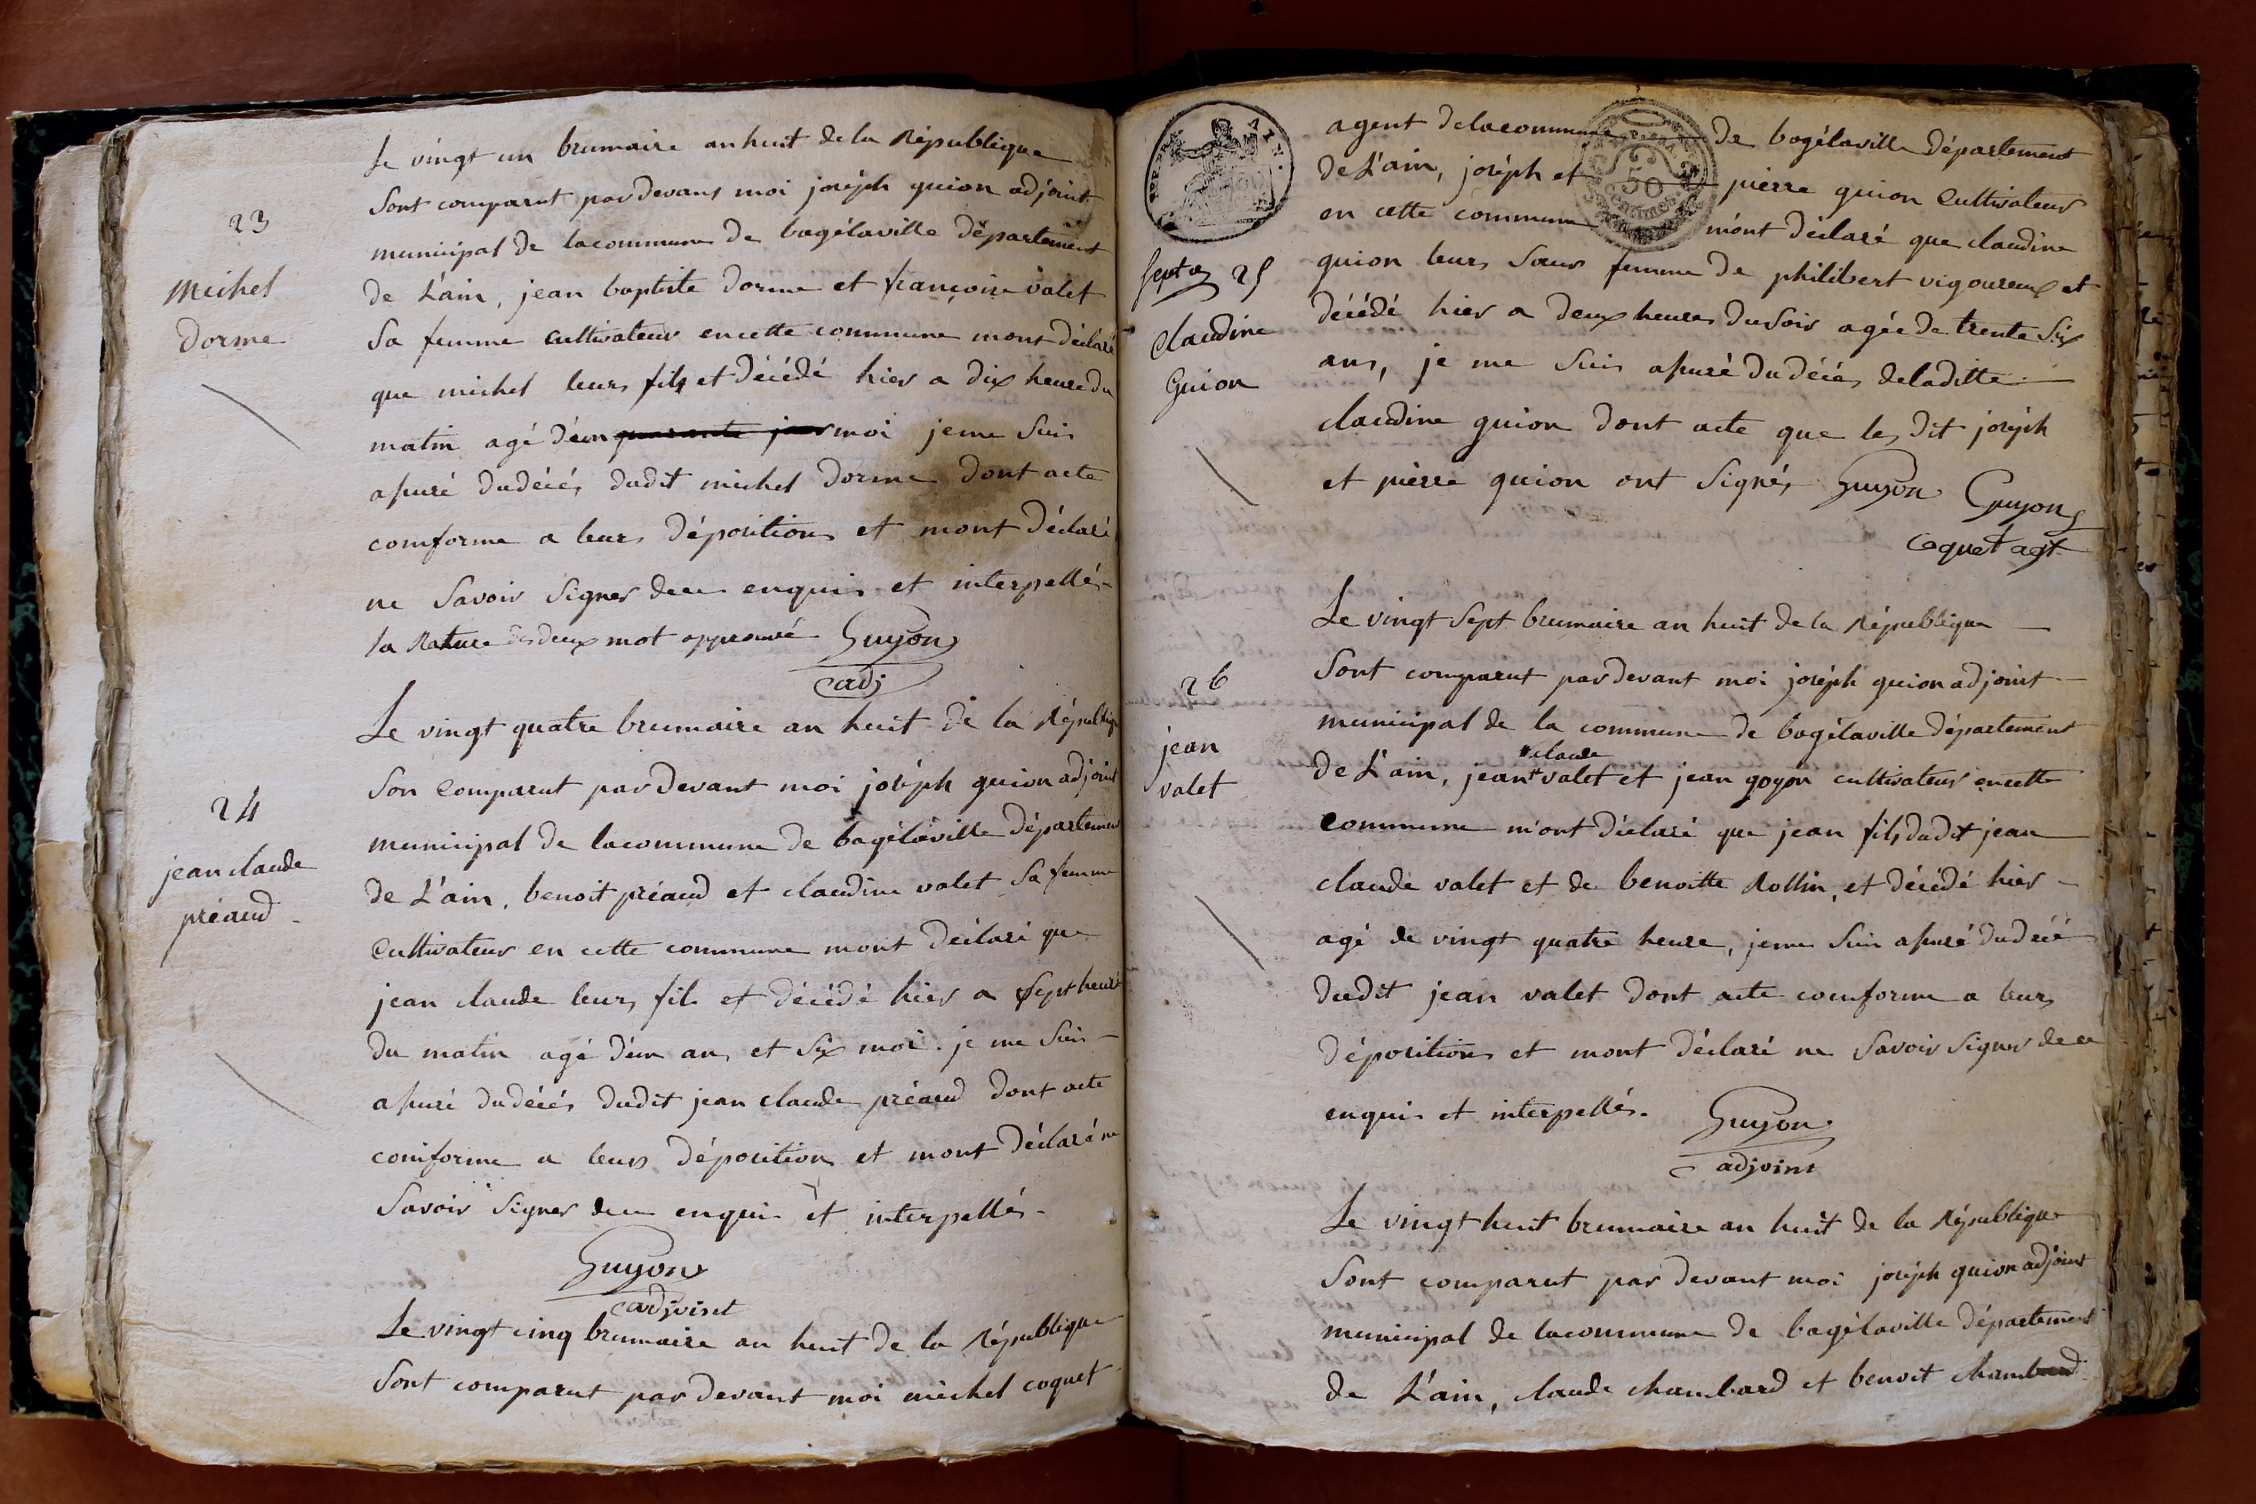 23
Michel
Dorme
Le vingt un brumaire an huit de la République
Sont comparut pardevans moi joséph guion adjoint
municipal de lacommune de bagélaville département
de L'ain, jean baptiste dorme et francoise valet
Sa femme cultivateur encette commune mont déclaré
que michel leurs fils et décédé hier a dix heure du
matin agé d'un quarante jour moi jeme Suis
assuré dudécés dudit michel dorme dont acte
comforme a leurs dépositions et mont déclaré
ne Savoir Signer dece enquis et interpellés
la Rature des deux mot approuvé Guyon
adj
24
jean claude
préaud
Le vingt quatre brumaire an huit de la République
Son Comparut par devant moi joséph guion adjoint
municipal de lacommune de bagélaville département
de L'ain, benoit préaud et claudine valet Sa femme
Cultivateur en cette commune mont déclaré que
jean claude leurs fils et décédé hier a Sept heure
du matin agé d'un an et Six moi. je me Suis
assuré dudécés dudit jean claude préaud dont acte
comforme a leurs dépositions et mont déclaré ne
Savoir Signer dece enquis et interpellés
Guyon
adjoint
Le vingt cinq brumaire an huit de la République
Sont comparut par devant moi michel coquet
agent delacommune de bagélaville département
de L'ain, joséph et pierre guion Cultivateur
en cette commune m'ont déclaré que claudine
25
Claudine
Guion
guion leurs Soeur femme de philibert vigoureux et
décédé hier a deux heures duSoir agée de trente Six
ans, je me Suis assuré dudécés deladitte
claudine guion dont acte que les dit joséph
et pierre guion ont Signés Guyon Guyon
Coquet agt
26
jean
valet
Le vingt Sept brumaire an huit de la République
Sont comparut par devant moi joséph guion adjoint
municipal de la commune de bagélaville département
claude
de L'ain, jean valet et jean goyon cultivateur encette
Commune m'ont déclaré que jean fils dudit jean
claude valet et de benoitte Rollin, et décédé hier
agé de vingt quatre heure, jeme Suis assuré dudécé
dudit jean valet dont acte comforme a leurs
dépositions et mont déclaré ne Savoir Signer de ce
enquis et interpellés.
Guyon
adjoint
Le vingt huit brumaire an huit de la République
Sont comparut par devant moi joséph guion adjoint
municipal de lacommune de bagélaville département
de L'ain, claude chambard et benoit chambard